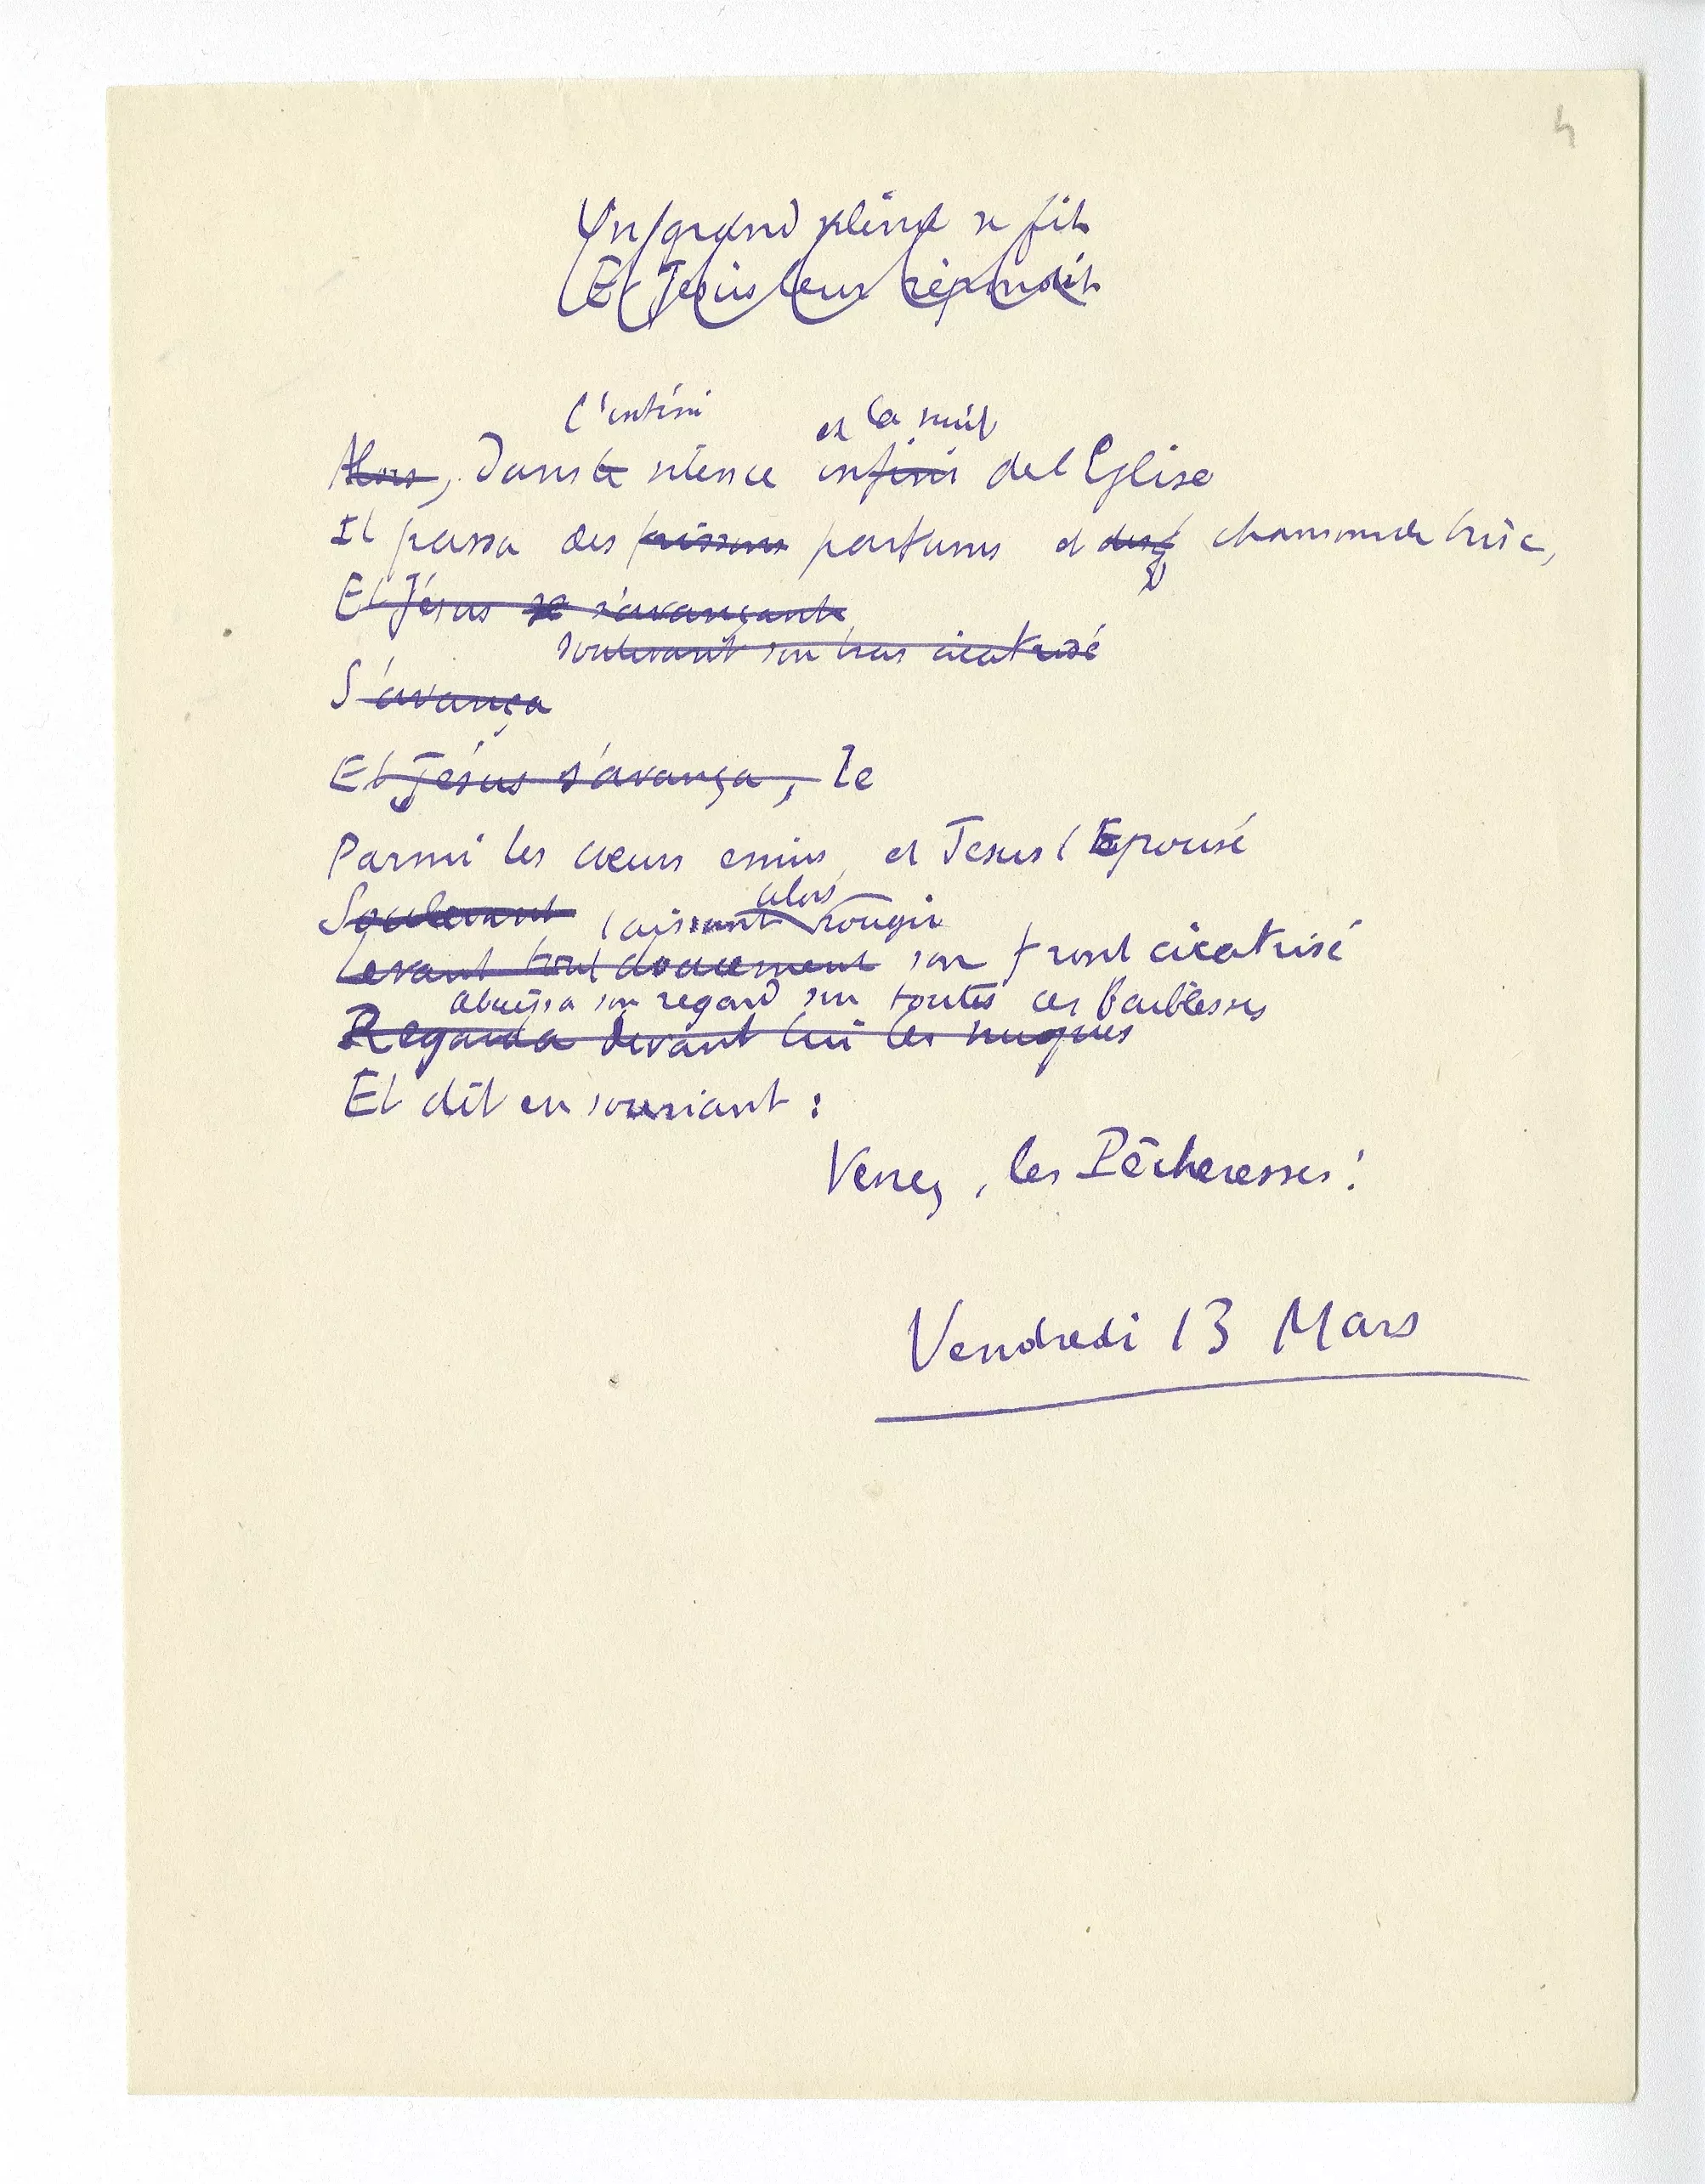 4
Un grand silence se fit
Et Jésus leur répondit
l'infini et la nuit
Alors, Dans le silence infini de l Eglise
Il passa des frissons parfums et des chansons de brise,
Et Jésus se s'avançant
soulevant son bras cicatrisé
S'avança
Et Jésus s'avança, le
Parmi les cœurs emus, et Jesus l'Epousé
alors
Soulevant laissant rougir
Levant tout doucement son front cicatrisé
abaissa son regard sur toutes ces faiblesses
Regarda devant lui les nuques
Et dit en souriant :
Venez, les Pêcheresses !
Vendredi 13 Mars